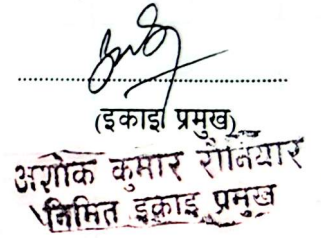 (इकाई प्रमुख)
अशोक कुमार रौनियार
निमित इकाइ प्रमुख